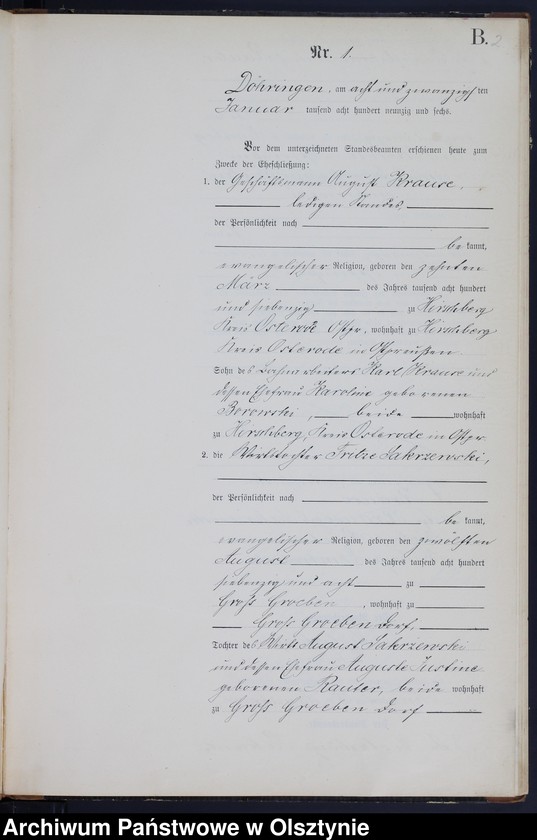 B. 2
Nr. 1.
Döhringen, am acht und zwanzigsten
Januar tausend acht hundert neunzig und sechs.
Vor dem unterzeichneten Standesbeamten erschienen heute zum
Zwecke der Eheschließung:
1. der Geschäftsmann August Krause,
ledigen Standes,
der Persönlichkeit nach
bekannt,
evangelischer Religion, geboren den zehnten
März des Jahres tausend acht hundert
und siebenzig zu Hirschberg
Kreis Osterode Ostpr, wohnhaft zu Hirschberg
Kreis Osterode in Ostpreußen
Sohn des Karl Krause und
dessen Ehefrau Karoline geborenen
Borowski, beide wohnhaft
zu Hirschberg, Kreis Osterode in Ostpr
2. die Wirthstochter Sakrzewski,
der Persönlichkeit nach
bekannt,
evangelischer Religion, geboren den zwölften
August des Jahres tausend acht hundert
siebenzig und acht zu
Groß Groeben, wohnhaft zu
Groß Groeben Dorf,
Tochter des Wirths August Sakrzewski
und dessen Ehefrau Auguste Justine
geborenen Rauter, beide wohnhaft
zu Groß Groeben Dorf
Archiwum Państwowe w Olsztynie